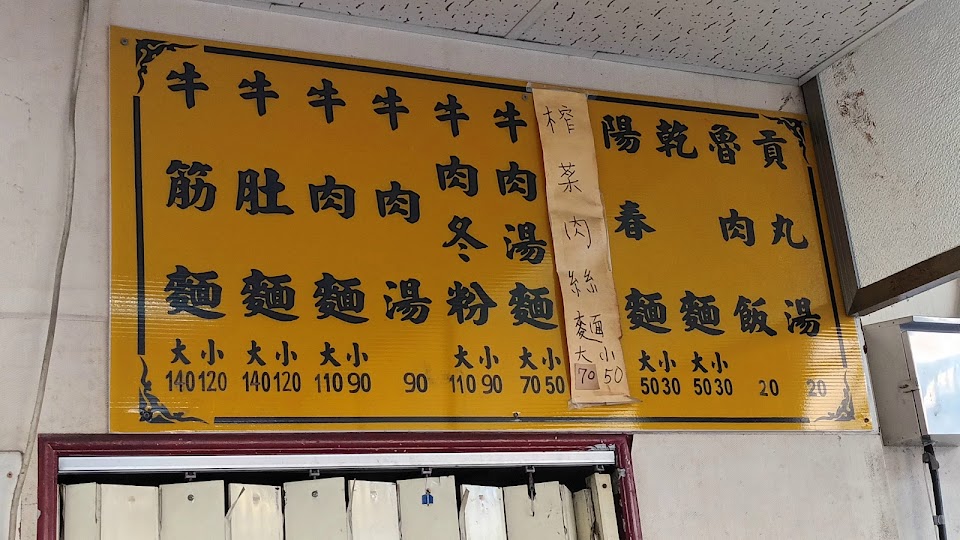 牛筋麵 大140 小120
牛肚麵 大140 小120
牛肉麵 大110 小90
牛肉湯 90
牛肉冬粉 大110 小90
牛肉湯麵 大70 小50
榨菜肉絲麵 大70 小50
陽春麵 大50 小30
乾麵 大50 小30
魯肉飯 20
貢丸湯 20